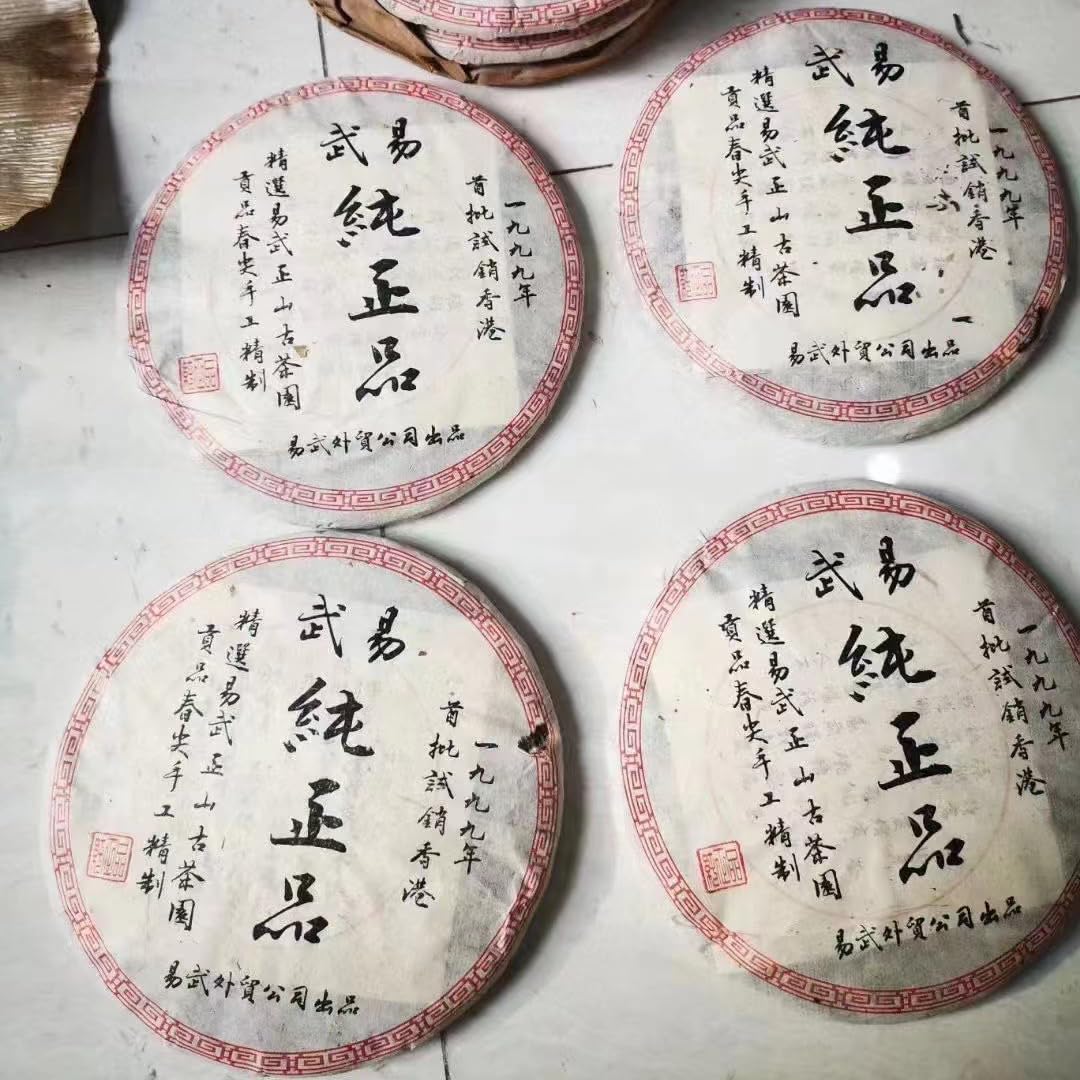 一九九九年
首批試銷香港
易武
純正品
精選易武正山古茶園
貢品春尖手工精制
易武外貿公司出品
一九九九年
首批試銷香港
易武
純正品
精選易武正山古茶園
貢品春尖手工精制
易武外貿公司出品
一九九九年
首批試銷香港
易武
純正品
精選易武正山古茶園
貢品春尖手工精制
易武外貿公司出品
一九九九年
首批試銷香港
易武
純正品
精選易武正山古茶園
貢品春尖手工精制
易武外貿公司出品